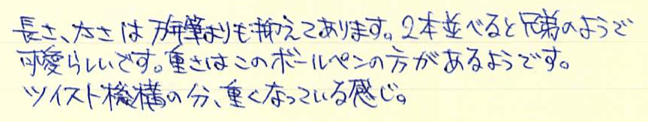 長さ、太さは万年筆よりも抑えてあります。2本並べると兄弟のようで
可愛らしいです。重さはこのボールペンの方があるようです。
ツイスト機構の分、重くなっている感じ。